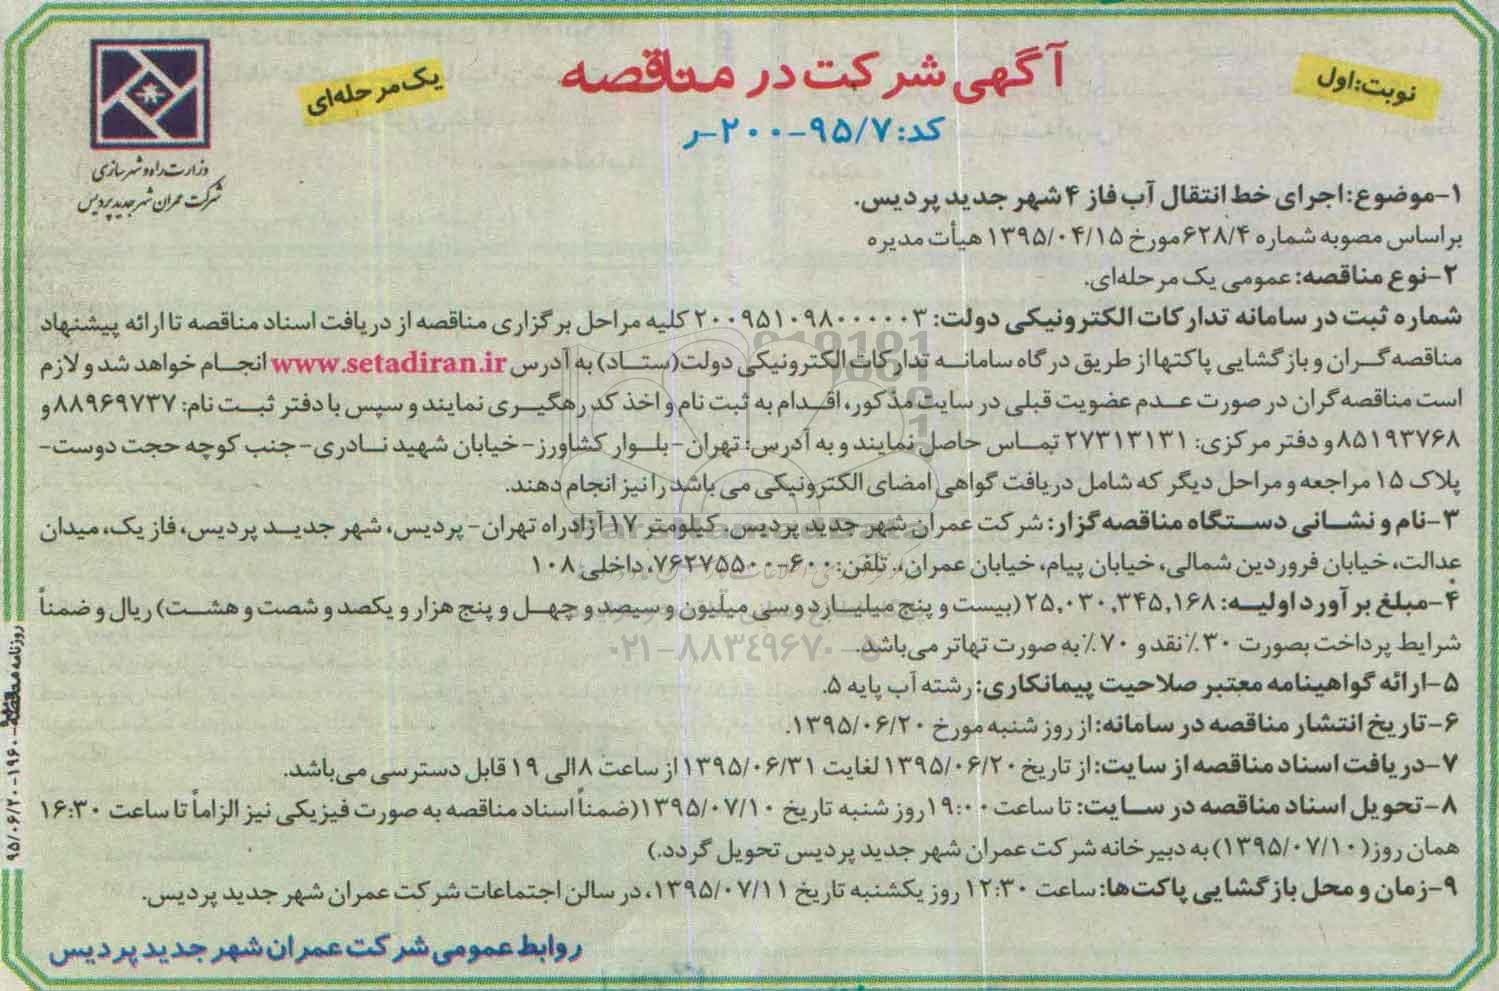 نوبت:اول
آگهی شرکت در مناقصه
یک مرحله‌ای
کد: ۹۵/۷-۲۰۰-ر
وزارت راه و شهرسازی
شرکت عمران شهر جدید پردیس
۱-موضوع: اجرای خط انتقال آب فاز ۴ شهر جدید پردیس.
براساس مصوبه شماره ۶۲۸/۴ مورخ ۱۳۹۵/۰۴/۱۵ هیأت مدیره
۲-نوع مناقصه: عمومی یک مرحله‌ای.
شماره ثبت در سامانه تدارکات الکترونیکی دولت: ۲۰۰۹۵۱۰۹۸۰۰۰۰۰۳ کلیه مراحل برگزاری مناقصه از دریافت اسناد مناقصه تا ارائه پیشنهاد
مناقصه گران و بازگشایی پاکتها از طریق درگاه سامانه تدارکات الکترونیکی دولت(ستاد) به آدرس www.setadiran.ir انجام خواهد شد و لازم
است مناقصه گران در صورت عدم عضویت قبلی در سایت مذکور، اقدام به ثبت نام و اخذ کد رهگیری نمایند و سپس با دفتر ثبت نام: ۸۸۹۶۹۷۳۷ و
۸۵۱۹۳۷۶۸ و دفتر مرکزی: ۲۷۳۱۳۱۳۱ تماس حاصل نمایند و به آدرس: تهران - بلوار کشاورز - خیابان شهید نادری - جنب کوچه حجت دوست -
پلاک ۱۵ مراجعه و مراحل دیگر که شامل دریافت گواهی امضای الکترونیکی می باشد را نیز انجام دهند.
۳-نام و نشانی دستگاه مناقصه گزار: شرکت عمران شهر جدید پردیس. کیلومتر ۱۷ آزادراه تهران - پردیس، شهر جدید پردیس، فاز یک، میدان
عدالت، خیابان فروردین شمالی، خیابان پیام، خیابان عمران،. تلفن: ۶۰۰-۷۶۲۷۵۵۰۰، داخلی ۱۰۸
۴-مبلغ برآورد اولیه: ۲۵,۰۳۰,۳۴۵,۱۶۸ (بیست و پنج میلیارد و سی میلیون و سیصد و چهل و پنج هزار و یکصد و شصت و هشت) ریال و ضمناً
شرایط پرداخت بصورت ۳۰٪ نقد و ۷۰٪ به صورت تهاتر می‌باشد.
۰۲۱-۸۸۳۴۹۶۷۰-۵
۵-ارائه گواهینامه معتبر صلاحیت پیمانکاری: رشته آب پایه ۵.
۶-تاریخ انتشار مناقصه در سامانه: از روز شنبه مورخ ۱۳۹۵/۰۶/۲۰.
۷-دریافت اسناد مناقصه از سایت: از تاریخ ۱۳۹۵/۰۶/۲۰ لغایت ۱۳۹۵/۰۶/۳۱ از ساعت ۸ الی ۱۹ قابل دسترسی می‌باشد.
۸-تحویل اسناد مناقصه در سایت: تا ساعت ۱۹:۰۰ روز شنبه تاریخ ۱۳۹۵/۰۷/۱۰ (ضمناً اسناد مناقصه به صورت فیزیکی نیز الزاماً تا ساعت ۱۶:۳۰
همان روز (۱۳۹۵/۰۷/۱۰) به دبیرخانه شرکت عمران شهر جدید پردیس تحویل گردد.)
۹-زمان و محل بازگشایی پاکت‌ها: ساعت ۱۲:۳۰ روز یکشنبه تاریخ ۱۳۹۵/۰۷/۱۱، در سالن اجتماعات شرکت عمران شهر جدید پردیس.
روابط عمومی شرکت عمران شهر جدید پردیس
روزنامه مناقصه-۱۹۶۰-۹۵/۰۶/۲۰